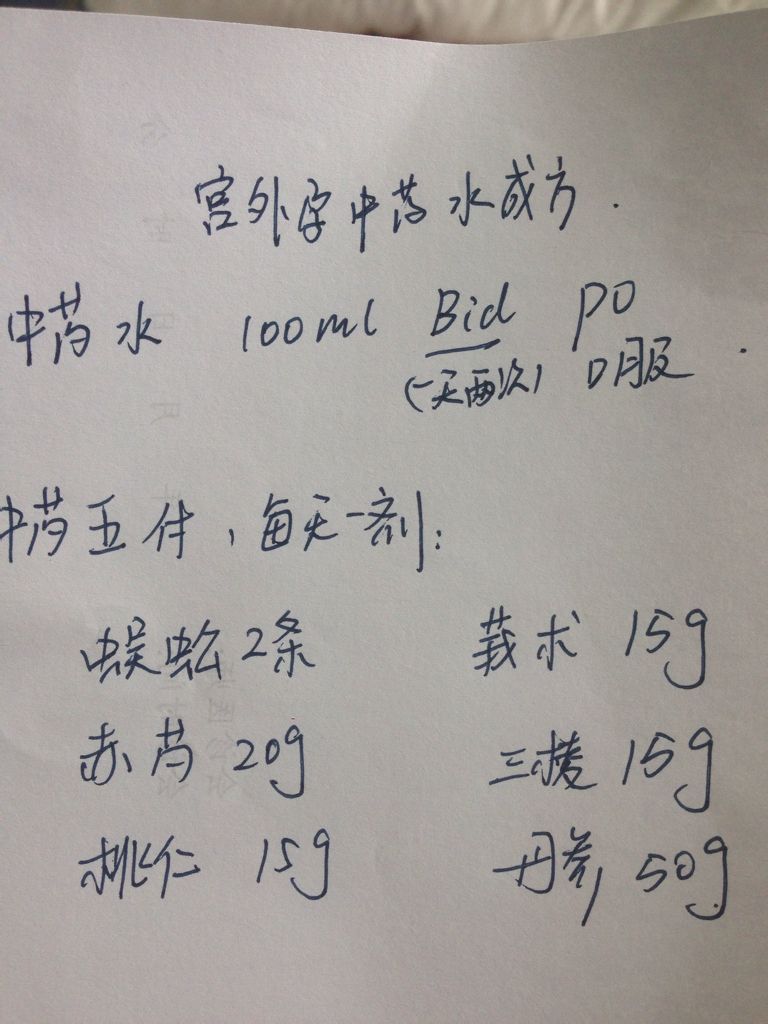 宫外孕中药水成方.
中药水 100ml Bid PO
(一天两次) 口服.
中药五付,每天一剂:
蜈蚣2条 莪术 15g
赤芍 20g 三棱 15g
桃仁 15g 丹参 50g